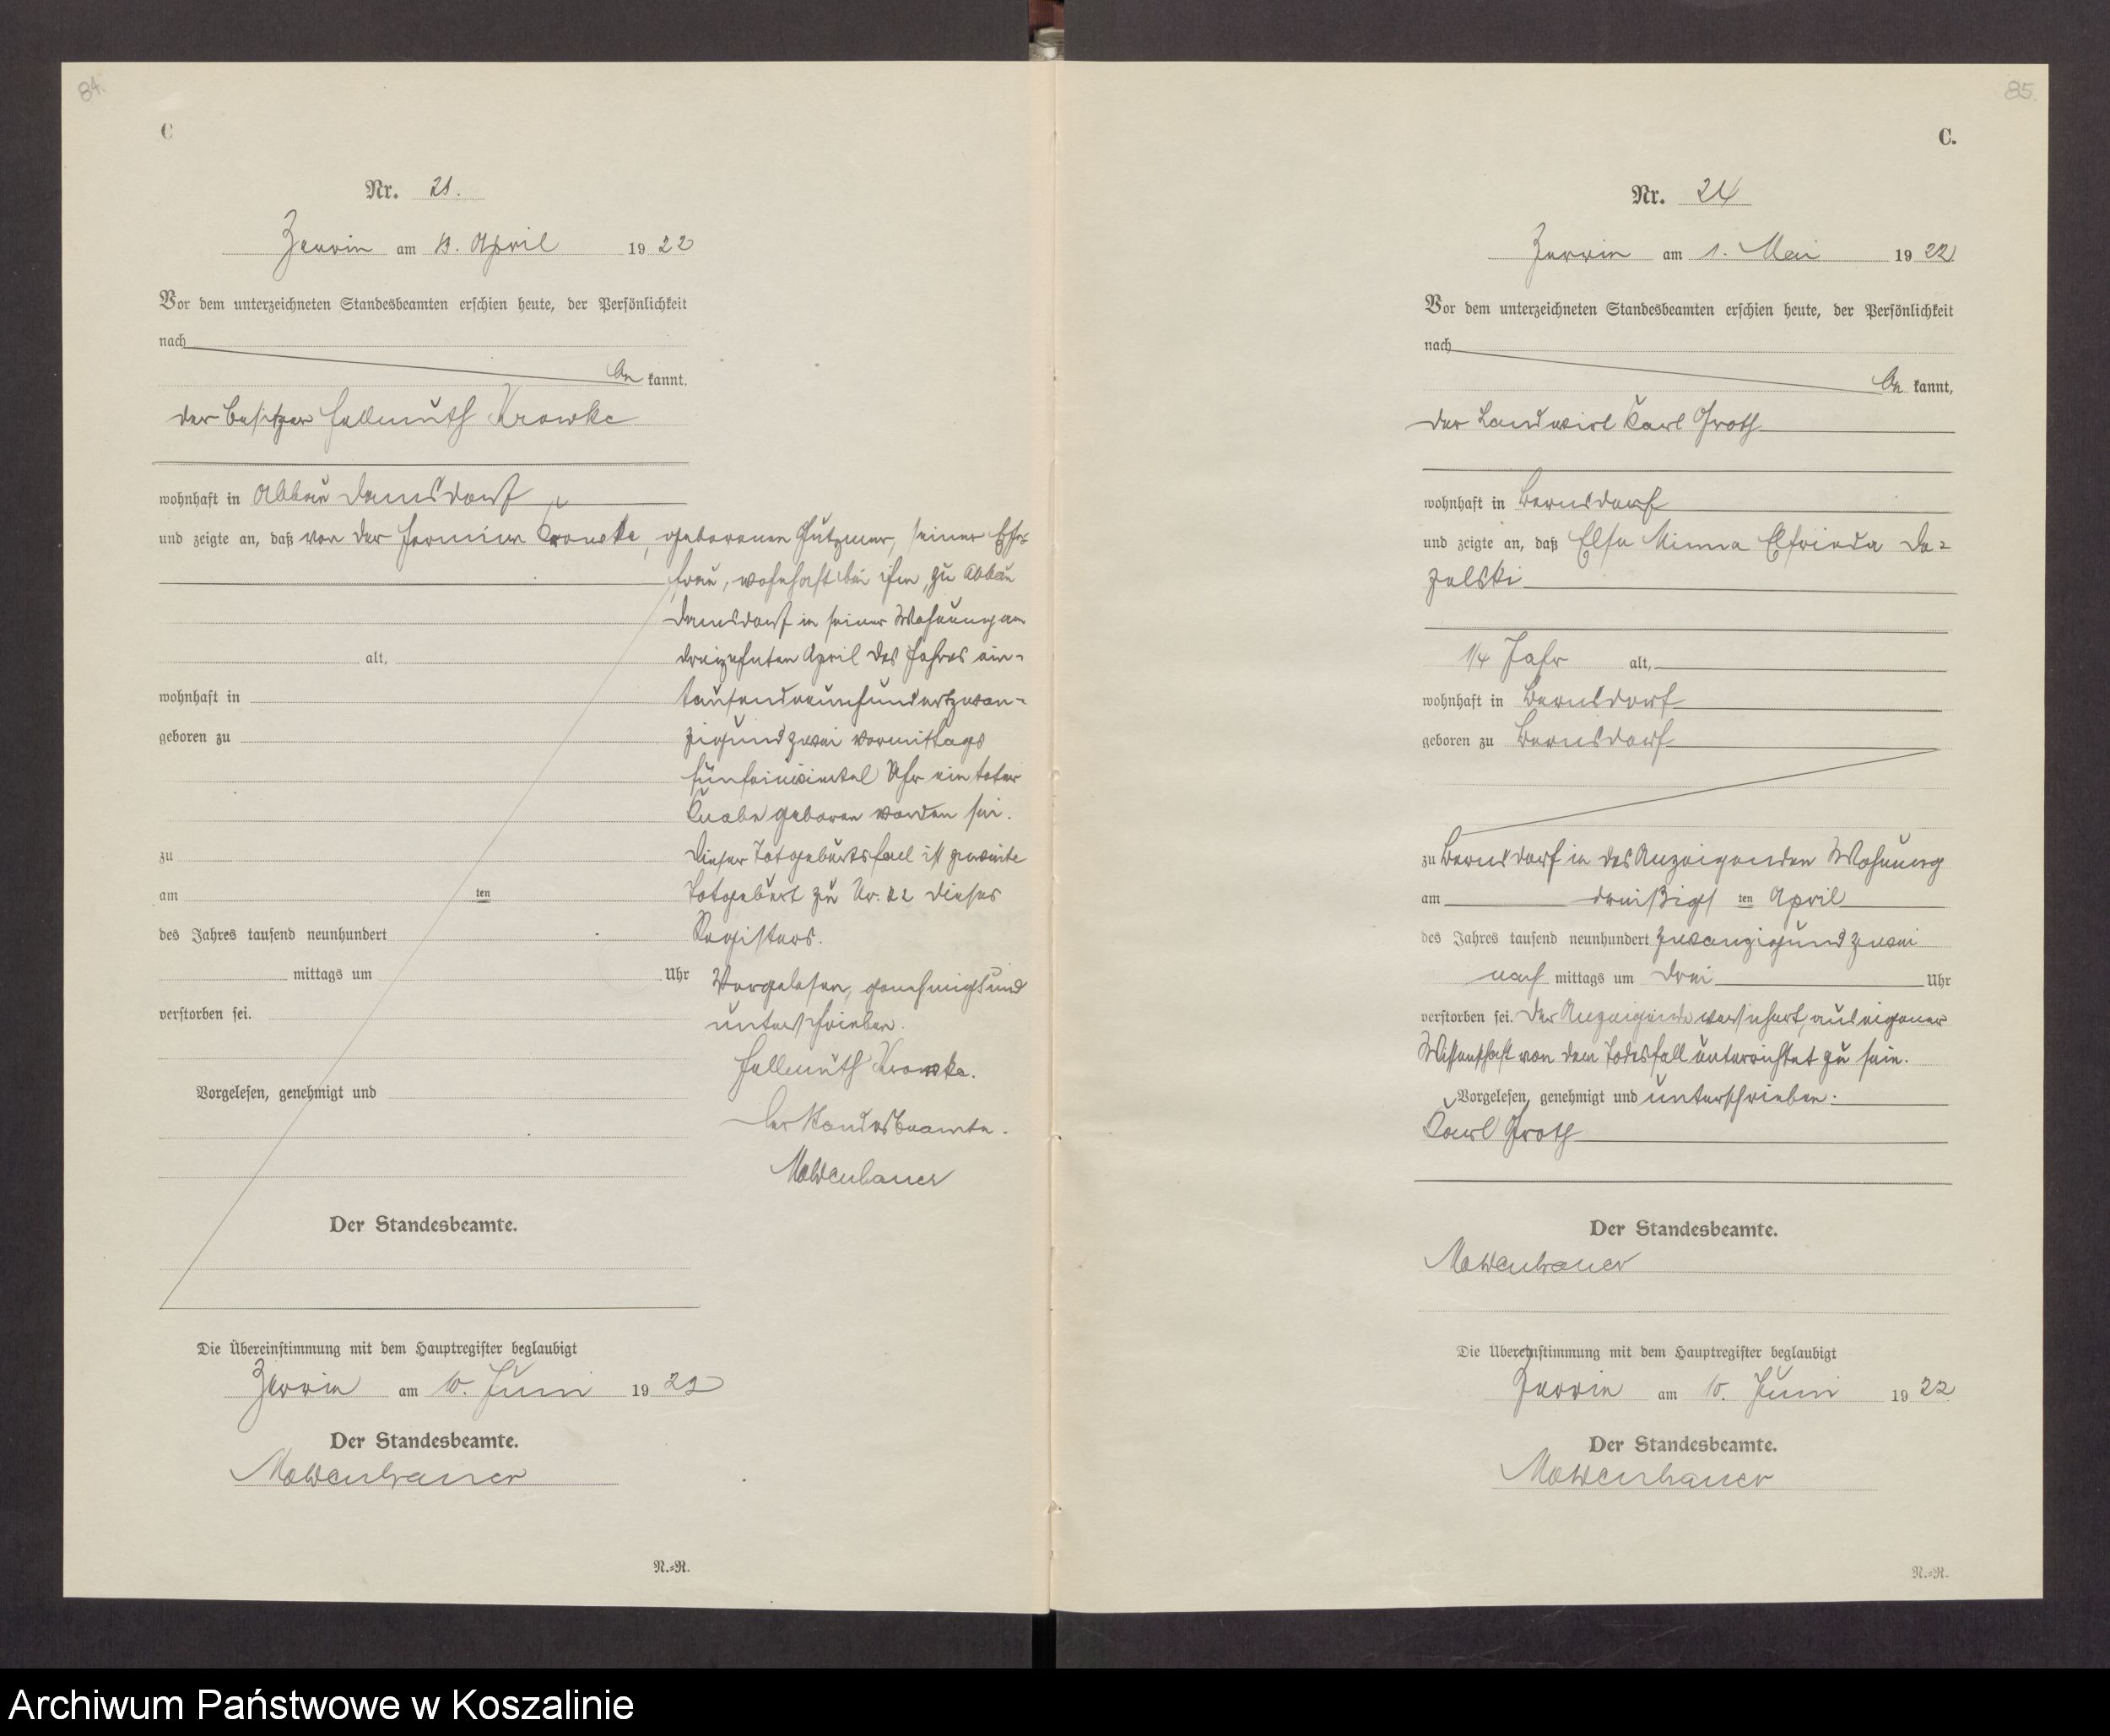 84.
C
Nr. 21.
Zerrin am 13. April 1922
Vor dem unterzeichneten Standesbeamten erschien heute, der Persönlichkeit
nach
be kannt.
der Besitzer Hellmuth Krowke
wohnhaft in Abbau Damsdorf
und zeigte an, daß von der Hermine Krowke, geborenen Gützmer, seiner Ehe-
frau, wohnhaft bei ihm, zu Abbau
Damsdorf in seiner Wohnung am
dreizehnten April des Jahres ein-
alt,
tausendneunhundertzwan-
wohnhaft in
zigundzwei vormittags
geboren zu
fünfeinviertel Uhr ein toter
Knabe geboren worden sei.
zu
Dieser Totgeburtsfall ist zweite
am ten
Totgeburt zu Nr. 22 dieses
des Jahres tausend neunhundert
Registers.
mittags um Uhr
Vorgelesen, genehmigt und
verstorben sei.
unterschrieben.
Hellmuth Krowke.
Vorgelesen, genehmigt und
Der Standesbeamte.
Der Standesbeamte.
Die Übereinstimmung mit dem Hauptregister beglaubigt
Zerrin am 10. Juni 1922
Der Standesbeamte.
N.=R.
85.
C.
Nr. 24
Zerrin am 1. Mai 1922
Vor dem unterzeichneten Standesbeamten erschien heute, der Persönlichkeit
nach
be kannt,
der Landwirt Karl Groth
wohnhaft in Bernsdorf
und zeigte an, daß Else Minna Elfrieda De=
zelski
1/4 Jahr alt,
wohnhaft in Bernsdorf
geboren zu Bernsdorf
zu Bernsdorf in des Anzeigenden Wohnung
am dreißigs ten April
des Jahres tausend neunhundert zwanzigundzwei
nach mittags um drei Uhr
verstorben sei. Der Anzeigende versichert, aus eigener
Wissenschaft von dem Todesfall unterrichtet zu sein.
Vorgelesen, genehmigt und unterschrieben.
Karl Groth
Der Standesbeamte.
Die Übereinstimmung mit dem Hauptregister beglaubigt
Zerrin am 10. Juni 1922
Der Standesbeamte.
N.=R.
Archiwum Państwowe w Koszalinie